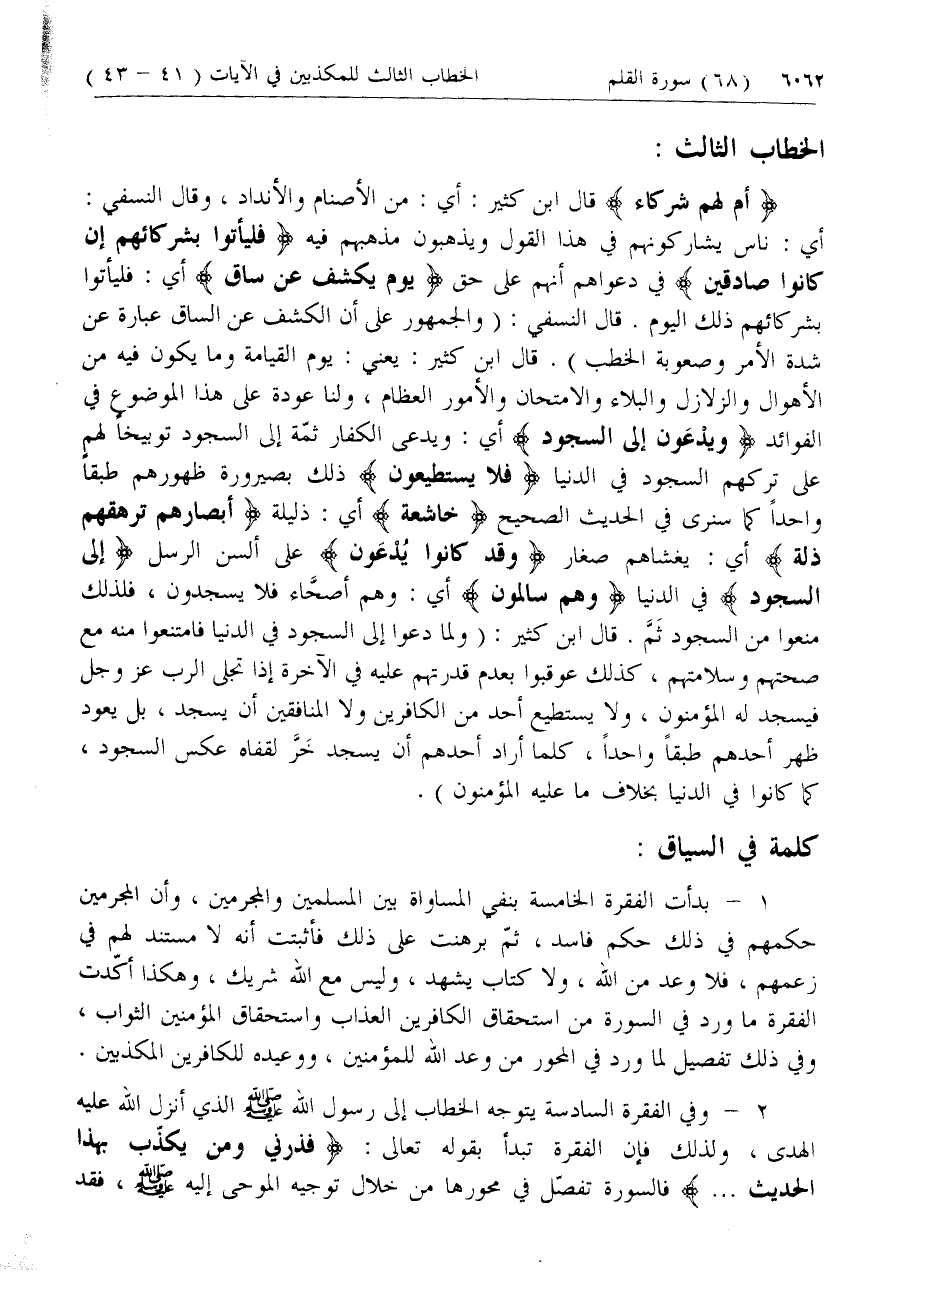 ٦٠٦٢ (٦٨) سورة القلم الخطاب الثالث للمكذبين في الآيات ( ٤١ - ٤٣ )
الخطاب الثالث :
﴿ أم لهم شركاء ﴾ قال ابن كثير : أي : من الأصنام والأنداد ، وقال النسفي :
أي : ناس يشاركونهم في هذا القول ويذهبون مذهبهم فيه ﴿ فليأتوا بشركائهم إن
كانوا صادقين ﴾ في دعواهم أنهم على حق ﴿ يوم يكشف عن ساق ﴾ أي : فليأتوا
بشركائهم ذلك اليوم . قال النسفي : ( والجمهور على أن الكشف عن الساق عبارة عن
شدة الأمر وصعوبة الخطب ) . قال ابن كثير : يعني : يوم القيامة وما يكون فيه من
الأهوال والزلازل والبلاء والامتحان والأمور العظام ، ولنا عودة على هذا الموضوع في
الفوائد ﴿ ويدْعَون إلى السجود ﴾ أي : ويدعى الكفار ثمّة إلى السجود توبيخاً لهم
على تركهم السجود في الدنيا ﴿ فلا يستطيعون ﴾ ذلك بصيرورة ظهورهم طبقاً
واحداً كما سنرى في الحديث الصحيح ﴿ خاشعة ﴾ أي : ذليلة ﴿ أبصارهم ترهقهم
ذلة ﴾ أي : يغشاهم صغار ﴿ وقد كانوا يُدْعَون ﴾ على ألسن الرسل ﴿ إلى
السجود ﴾ في الدنيا ﴿ وهم سالمون ﴾ أي : وهم أصحَّاء فلا يسجدون ، فلذلك
منعوا من السجود ثَمَّ . قال ابن كثير : ( ولما دعوا إلى السجود في الدنيا فامتنعوا منه مع
صحتهم وسلامتهم ، كذلك عوقبوا بعدم قدرتهم عليه في الآخرة إذا تجلى الرب عز وجل
فيسجد له المؤمنون ، ولا يستطيع أحد من الكافرين ولا المنافقين أن يسجد ، بل يعود
ظهر أحدهم طبقاً واحداً ، كلما أراد أحدهم أن يسجد خَرَّ لقفاه عكس السجود ،
كما كانوا في الدنيا بخلاف ما عليه المؤمنون ) .
كلمة في السياق :
١ - بدأت الفقرة الخامسة بنفي المساواة بين المسلمين والمجرمين ، وأن المجرمين
حكمهم في ذلك حكم فاسد ، ثمّ برهنت على ذلك فأثبتت أنه لا مستند لهم في
زعمهم ، فلا وعد من الله ، ولا كتاب يشهد ، وليس مع الله شريك ، وهكذا أكّدت
الفقرة ما ورد في السورة من استحقاق الكافرين العذاب واستحقاق المؤمنين الثواب ،
وفي ذلك تفصيل لما ورد في المحور من وعد الله للمؤمنين ، ووعيده للكافرين المكذبين .
٢ - وفي الفقرة السادسة يتوجه الخطاب إلى رسول الله ﷺ الذي أنزل الله عليه
الهدى ، ولذلك فإن الفقرة تبدأ بقوله تعالى : ﴿ فذرني ومن يكذّب بهذا
الحديث ... ﴾ فالسورة تفصّل في محورها من خلال توجيه الموحى إليه ﷺ ، فقد